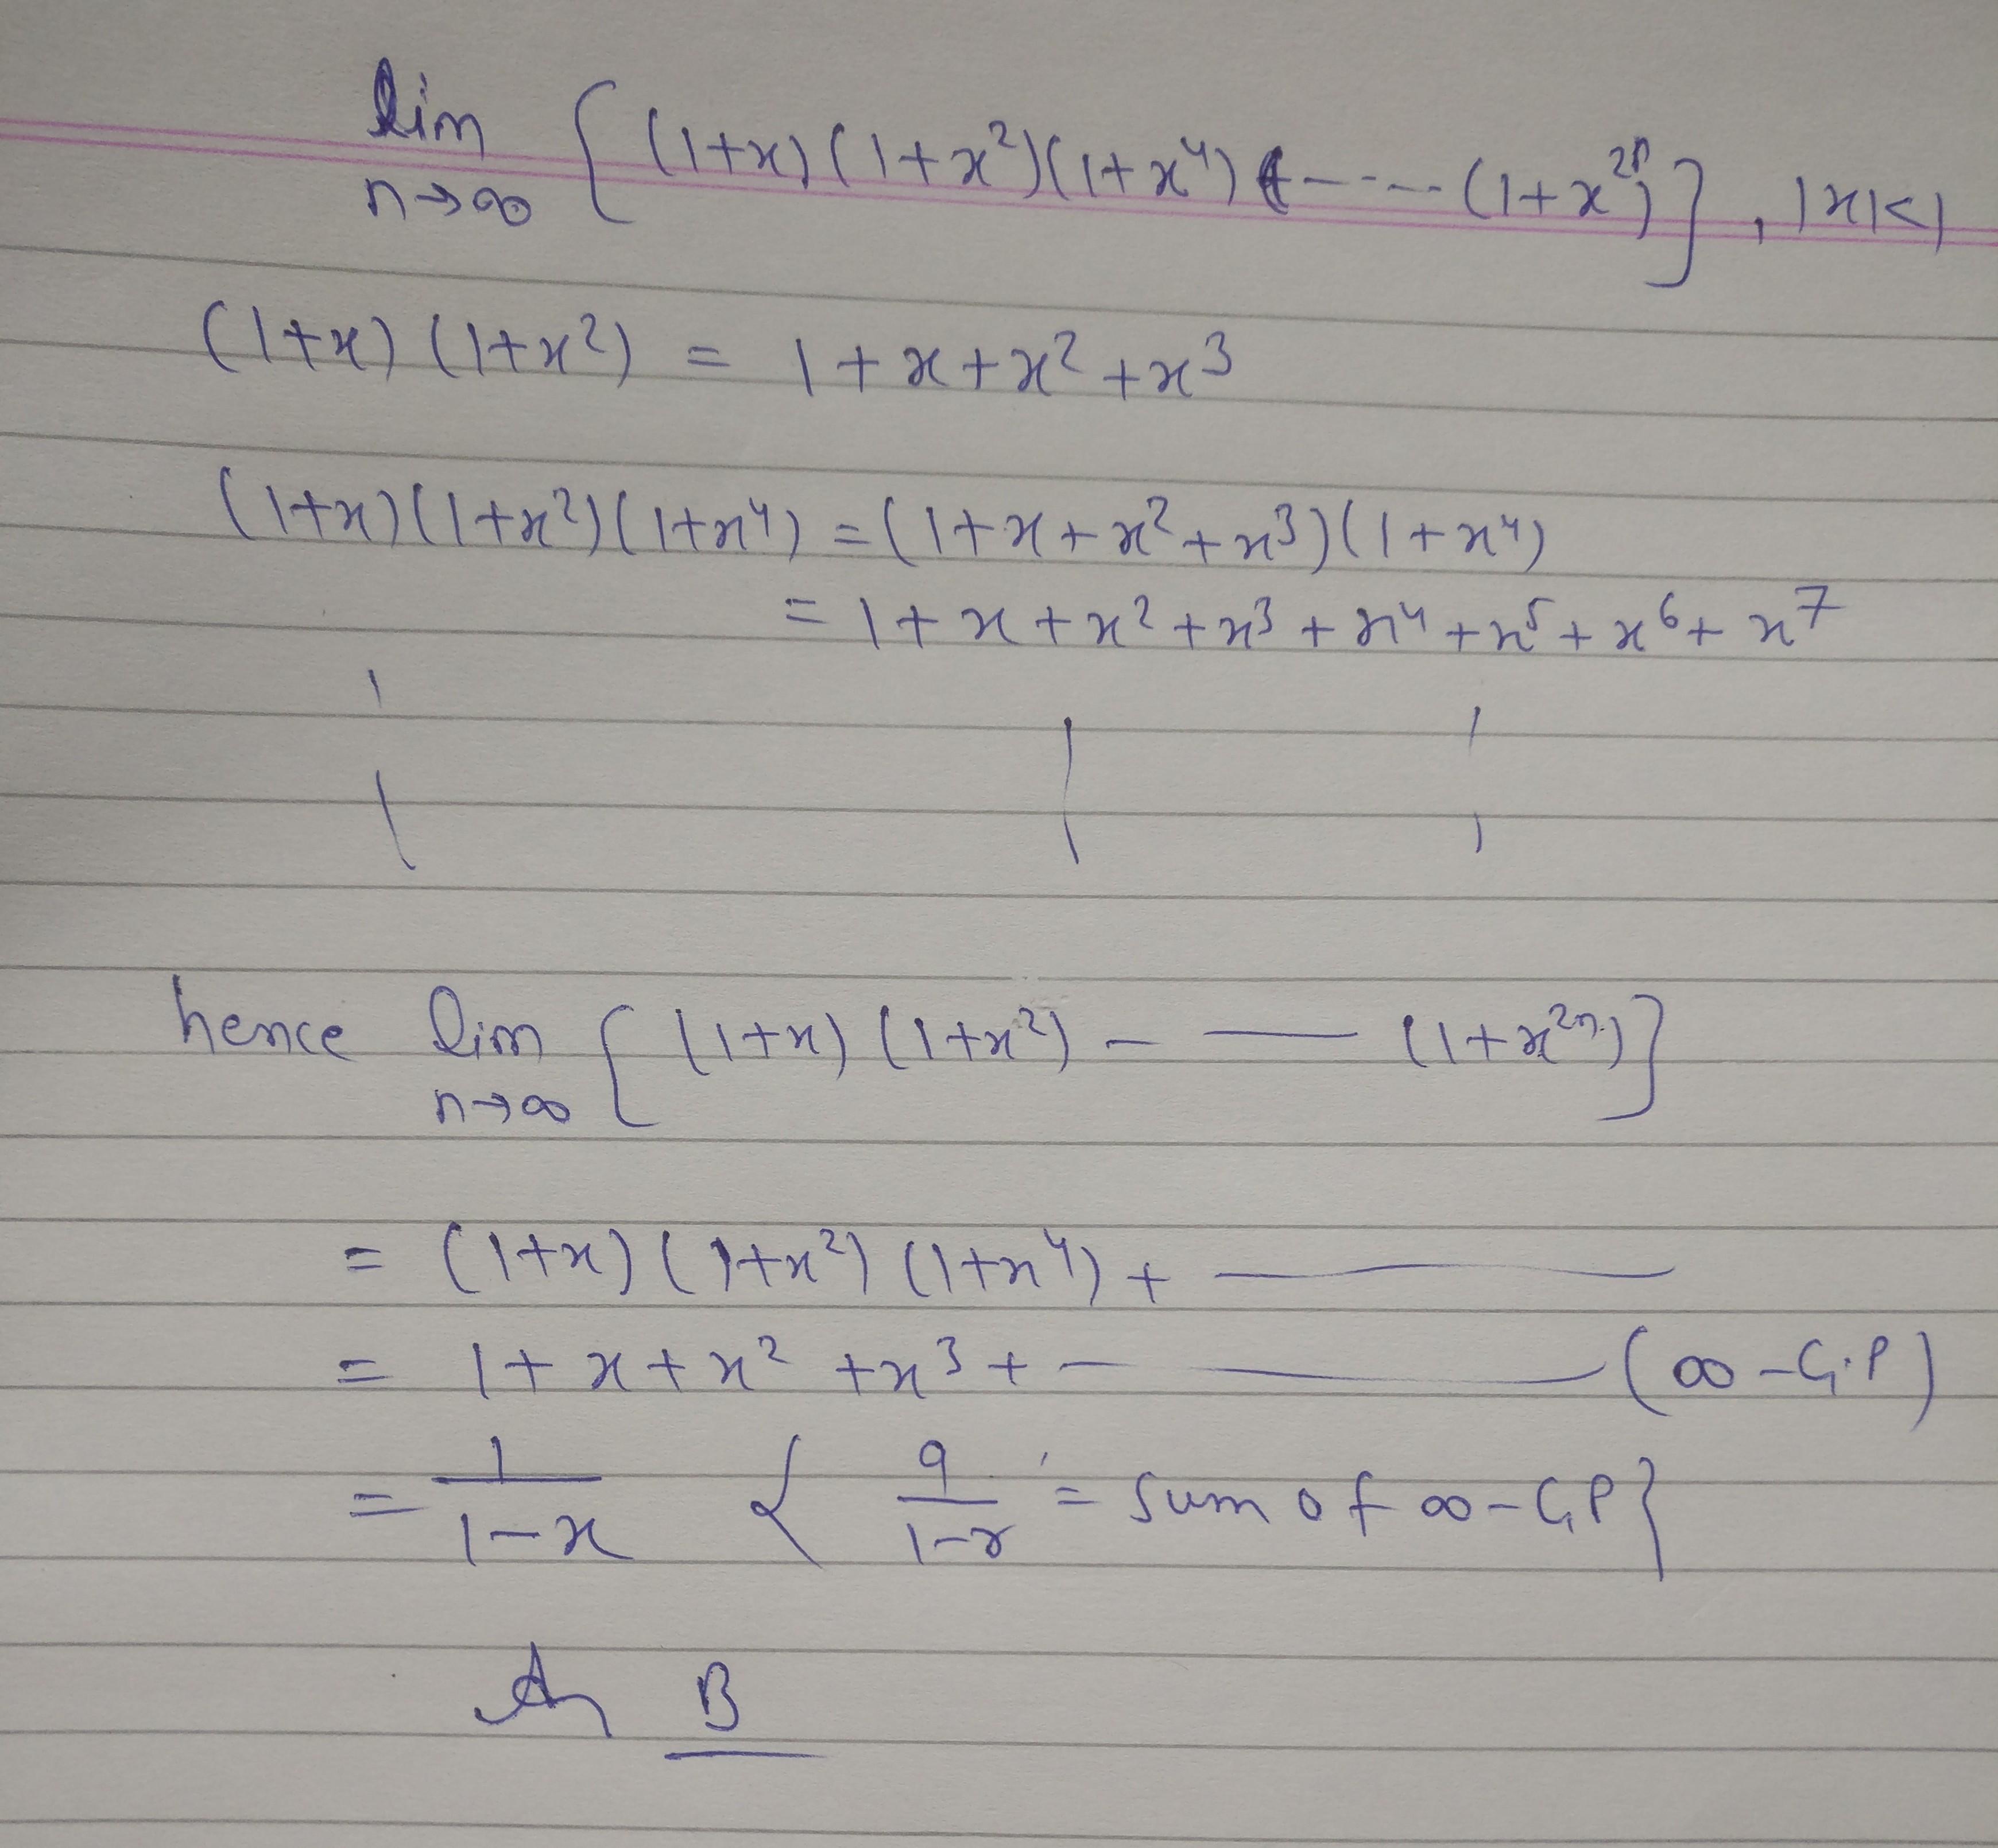 lim n→∞ { (1+x)(1+x²)(1+x⁴)(----- (1+x²ⁿ) } , |x|<1
(1+x) (1+x²) = 1+x+x²+x³
(1+x)(1+x²)(1+x⁴) = (1+x+x²+x³)(1+x⁴)
= 1+x+x²+x³+x⁴+x⁵+x⁶+x⁷
hence lim n→∞ { (1+x) (1+x²) - — (1+x²ⁿ) }
= (1+x) (1+x²) (1+x⁴) + ———
= 1+x+x²+x³+ - ——— (∞-G.P)
= 1/(1-x) { a/(1-r) = Sum of ∞-GP }
An B